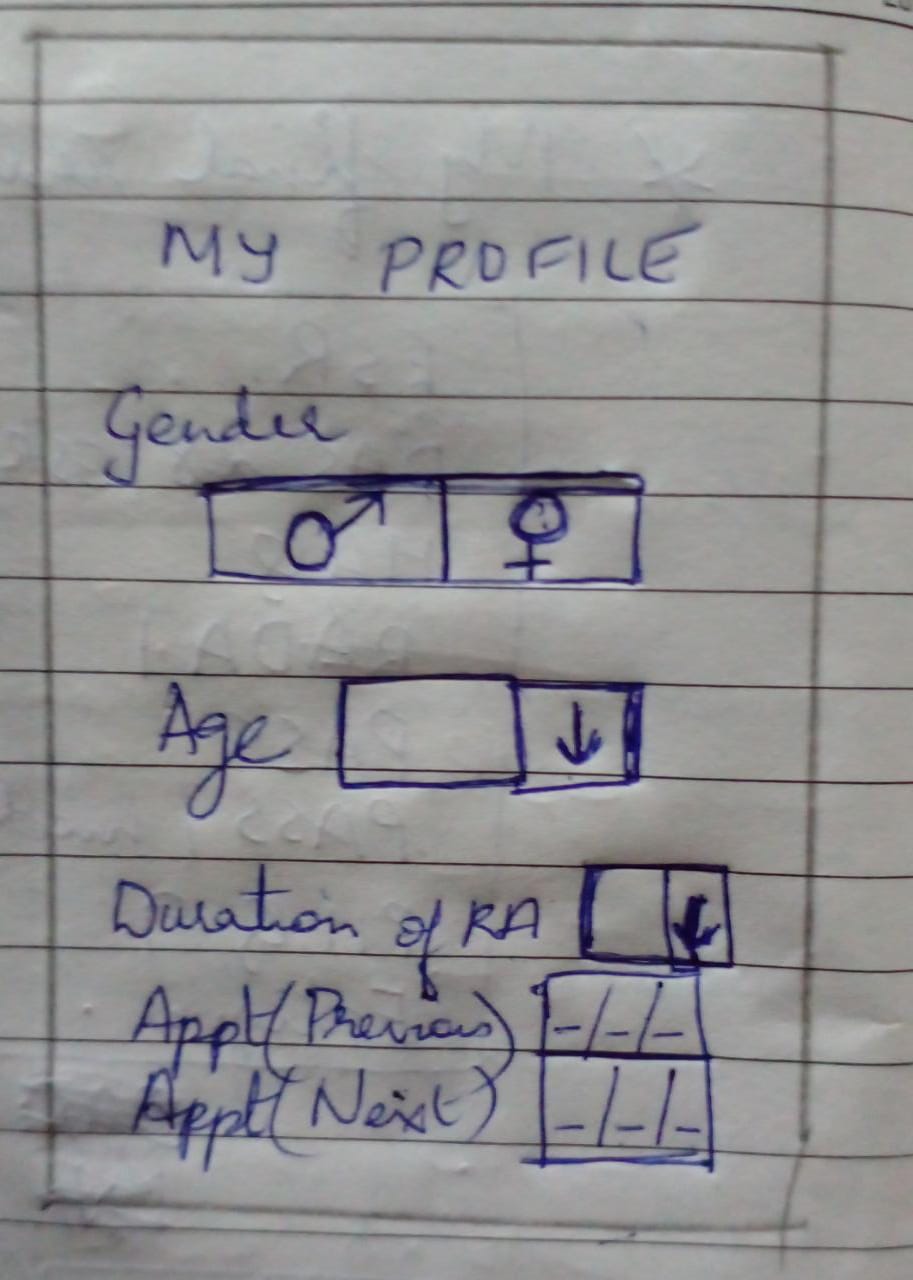 MY PROFILE
Gender
♂ ♀
Age ↓
Duration of RA ↓
Appt (Previous) _/_/_
Appt (Next) _/_/_